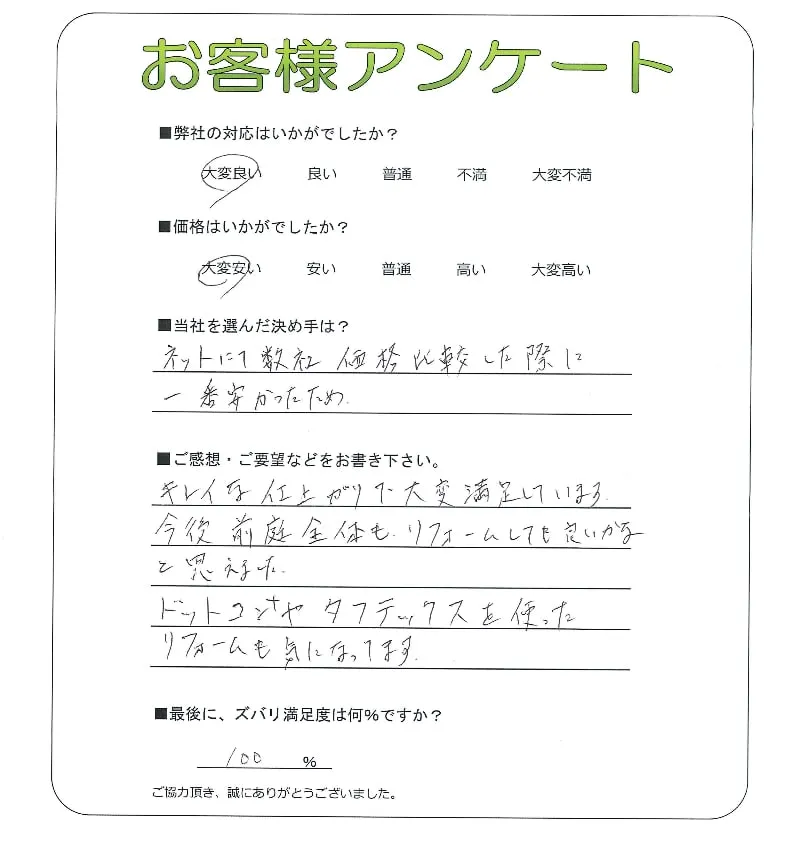 お客様アンケート
■弊社の対応はいかがでしたか？
大変良い 良い 普通 不満 大変不満
■価格はいかがでしたか？
大変安い 安い 普通 高い 大変高い
■当社を選んだ決め手は？
ネットにて数社 価格比較した際に
一番安かったため.
■ご感想・ご要望などをお書き下さい。
キレイな仕上がりで大変満足しています.
今後前庭全体も.リフォームしても良いかな
と思えました.
ドットコンや タフテックスを使った
リフォームも気になってます.
■最後に、ズバリ満足度は何%ですか？
100 %
ご協力頂き、誠にありがとうございました。